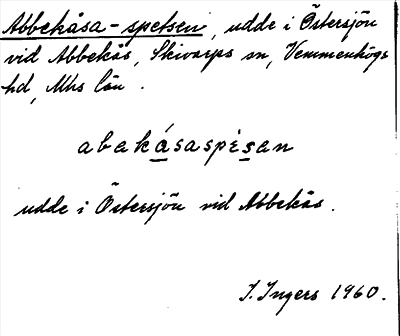 Abbekåsa-spetsen, udde i Östersjön
vid Abbekås, Skivarps sn, Vemmenhögs
hd, Mhs län.
abekásaspèsan
udde i Östersjön vid Abbekås.
I. Ingers 1960.